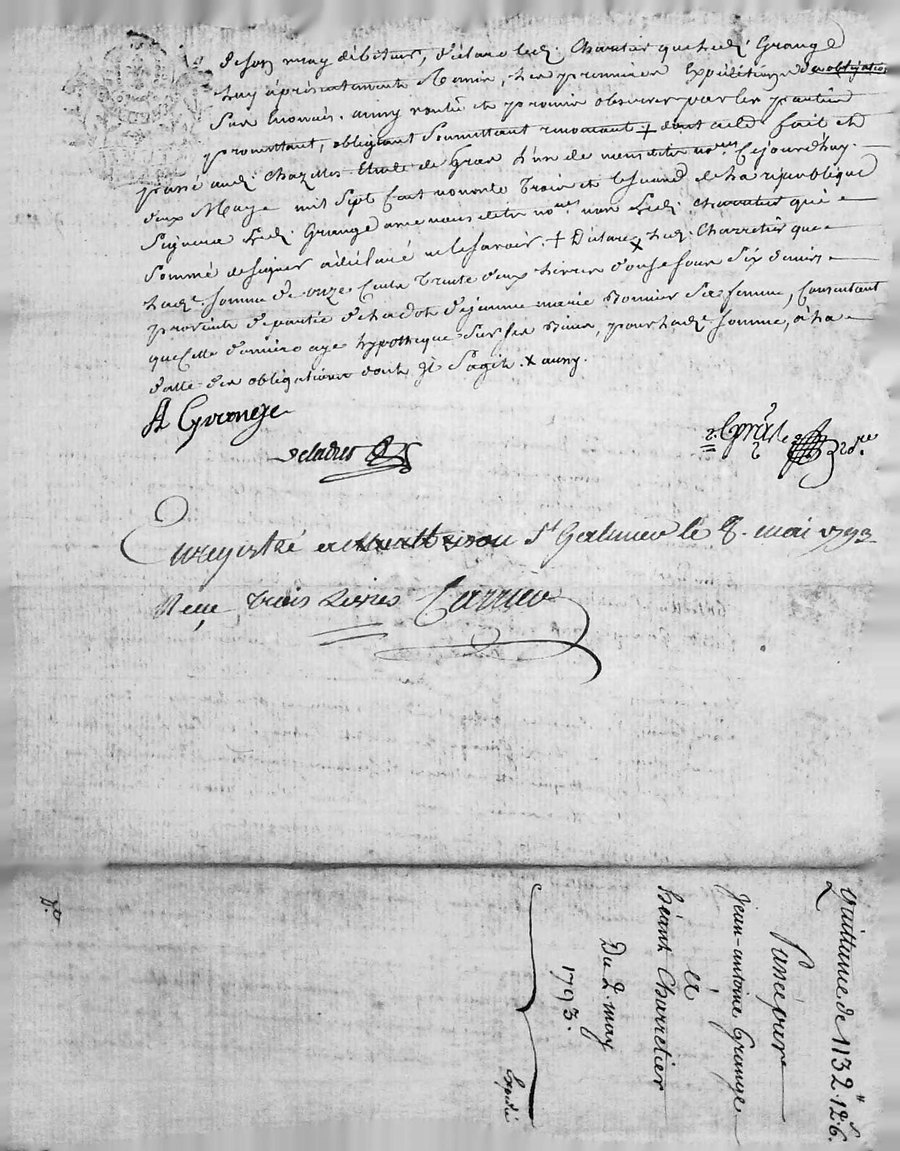 de son mary débiteur, déclare led. Charetier que led. Grange
luy a présentement Remis, les premières Expéditions des obligations
sus énoncés. ainsy voulu et promis observer par les parties
promettant, obligeant soumettant renonçant + dont acte fait et
passé aud. Chazelles Etude de Gras l'un de nous dits no.res Cejourd'huy
deux May mil sept Cent nonante Trois et le second de La république
Signera Led. Grange avec nous dits no.res non Led. Charretier qui
Sommé de signer a déclaré ne le savoir. + Déclare x led. Charretier que
Lad.e somme de onze Cents Trente deux Livres douze sous six deniers
provient de partie de la dot de jeanne marie Bonnier sa femme, Consentant
que celle dernière aye hypothèque sur ses Biens, pour lad.e somme, à la
datte des obligations dont il s'agit. x ainsy.
A Grange
Enregistré a St Galmier le 8. mai 1793
Reçu trois Livres Carrier
Quittance de 1132.# 12.s 6.
Passée par
Jean-antoine Grange
à
Charretier
Du 2. may
1793.
Expédié